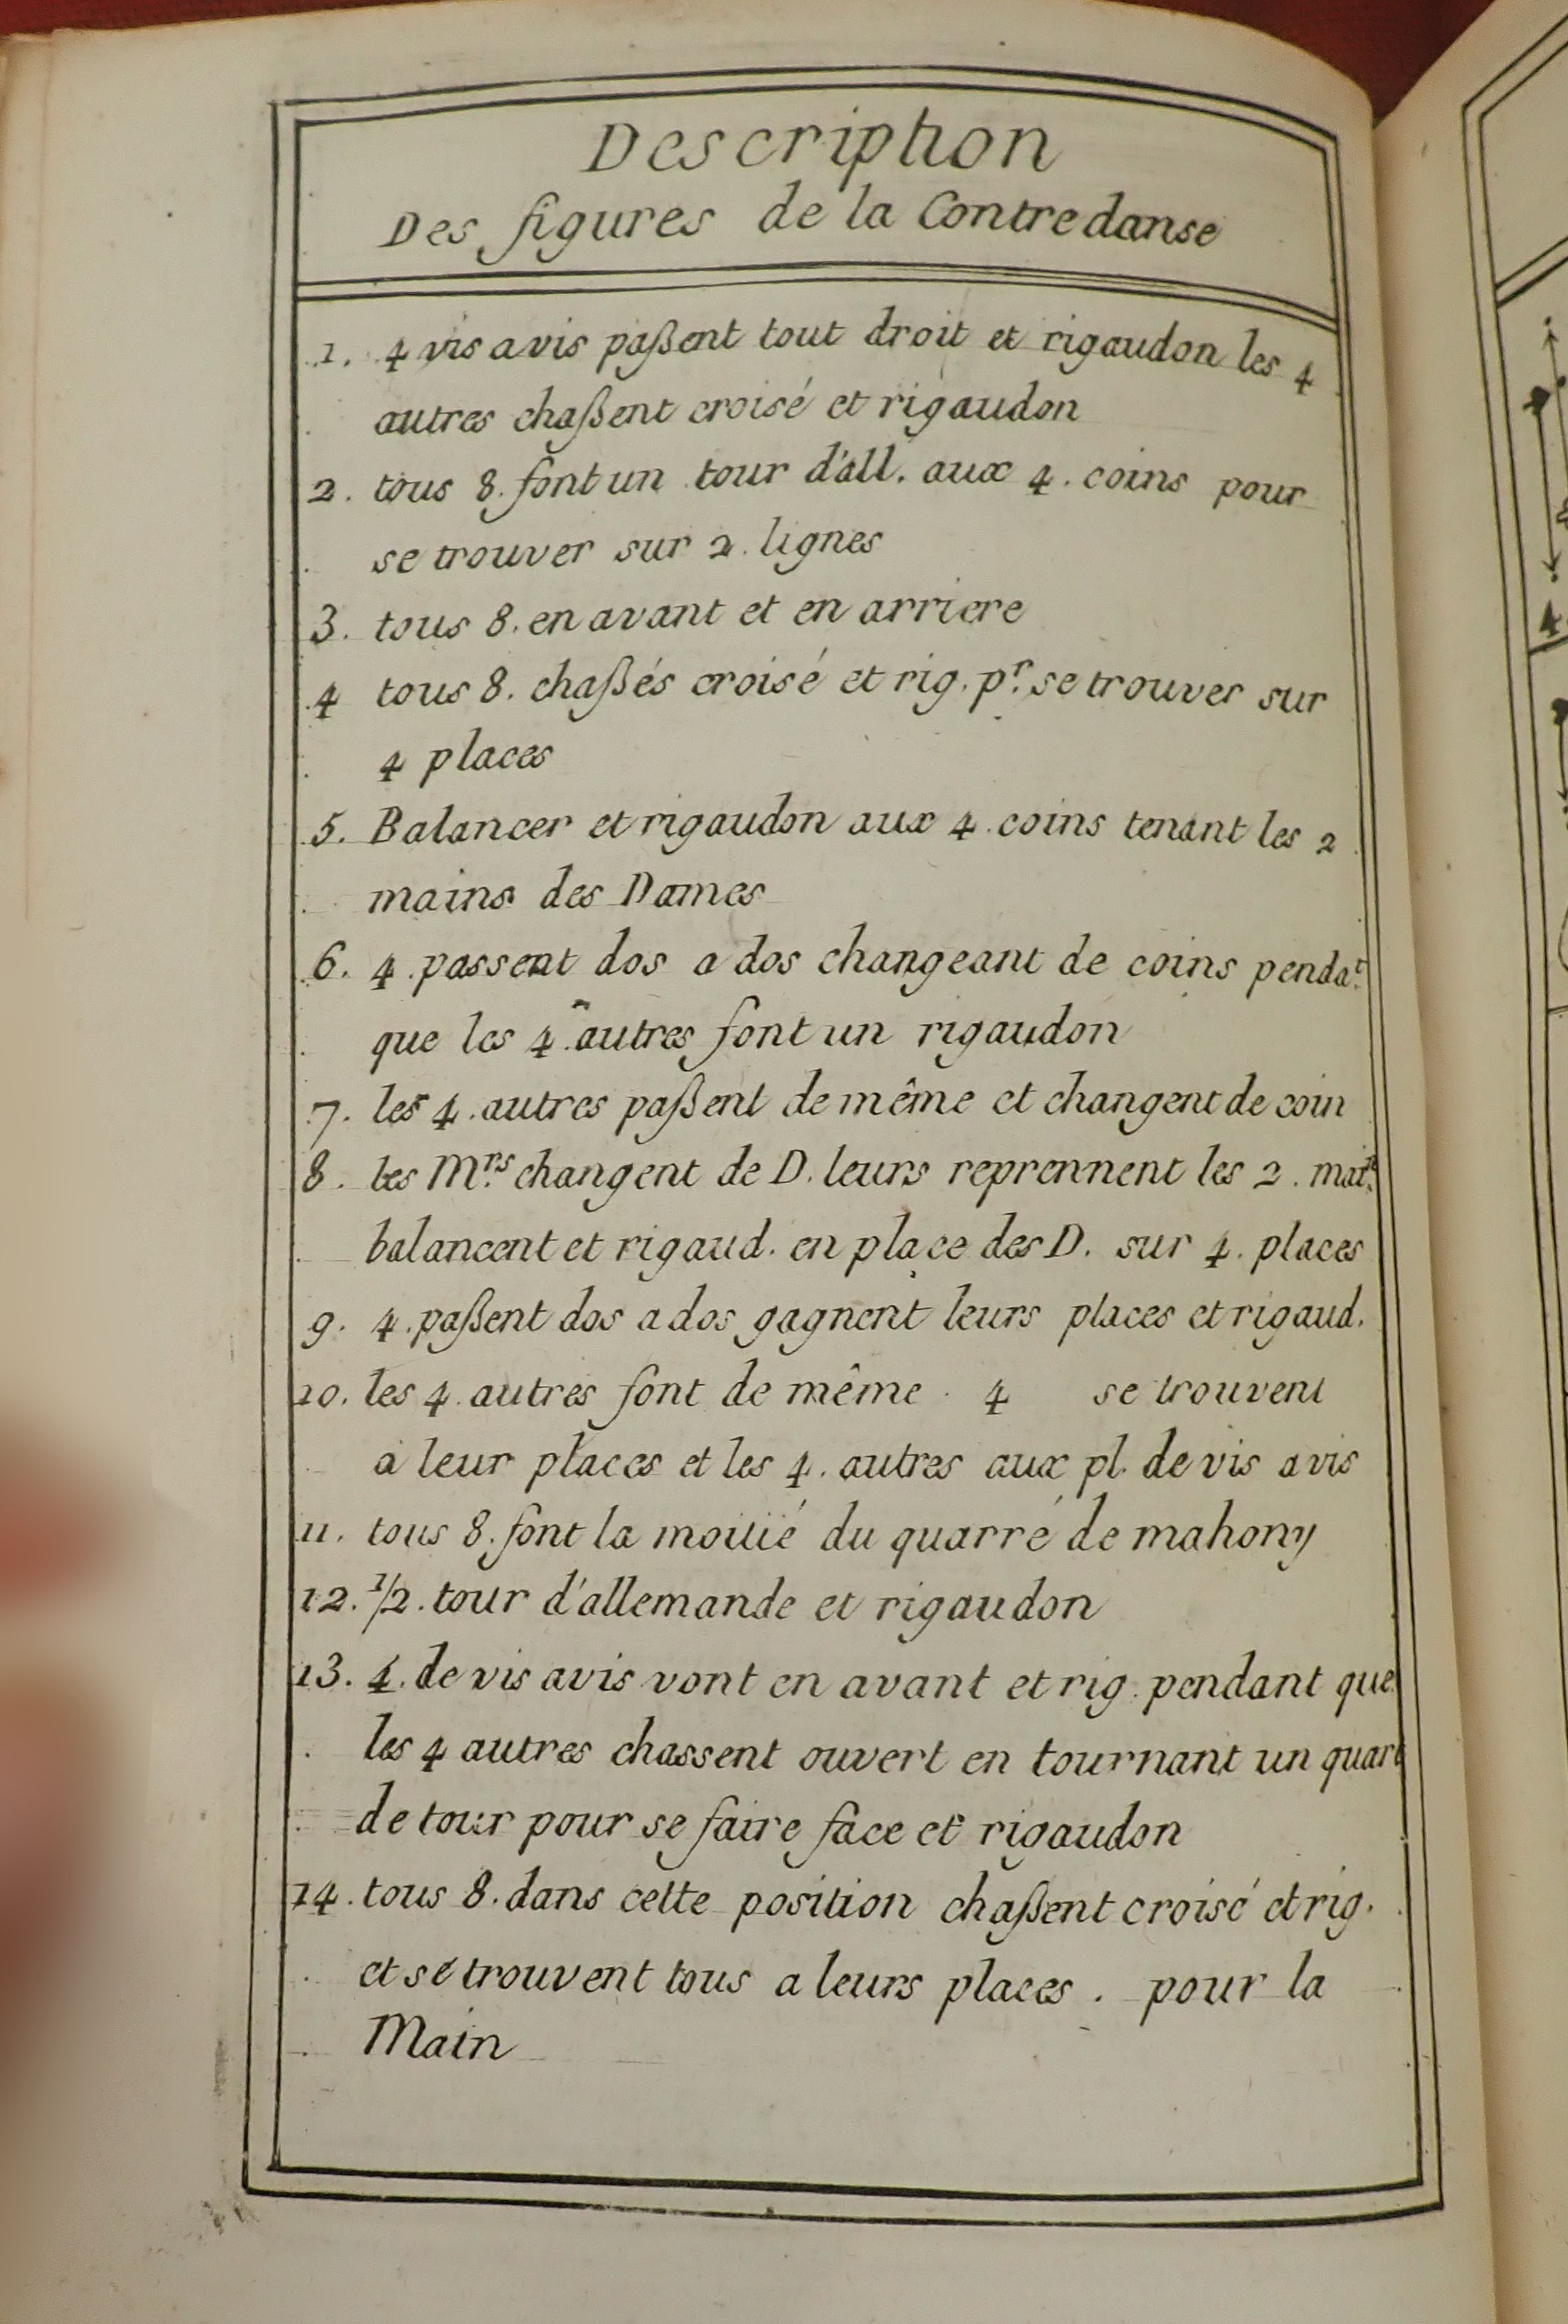 Description
Des figures de la Contredanse
1. 4 vis avis paßent tout droit et rigaudon les 4
autres chaßent croisé et rigaudon
2. tous 8. font un tour d'all. aux 4. coins pour
se trouver sur 2. lignes
3. tous 8. en avant et en arriere
4 tous 8. chaßés croisé et rig. pr. se trouver sur
4 places
5. Balancer et rigaudon aux 4. coins tenant les 2
mains des Dames
6. 4. passent dos a dos changeant de coins pendat.
que les 4. autres font un rigaudon
7. les 4. autres paßent de même et changent de coin
8. les Mrs. changent de D. leurs reprennent les 2.
balancent et rigaud. en place des D. sur 4. places
9. 4. paßent dos a dos gagnent leurs places et rigaud.
10. les 4. autres font de même 4 se trouvent
a leur places et les 4. autres aux pl. de vis avis
11. tous 8. font la moitié du quarré de mahony
12. 1/2. tour d'allemande et rigaudon
13. 4. de vis avis vont en avant et rig. pendant que
les 4 autres chassent ouvert en tournant un quart
de tour pour se faire face et rigaudon
14. tous 8. dans cette position chaßent croisé et rig.
et se trouvent tous a leurs places. pour la
Main
4